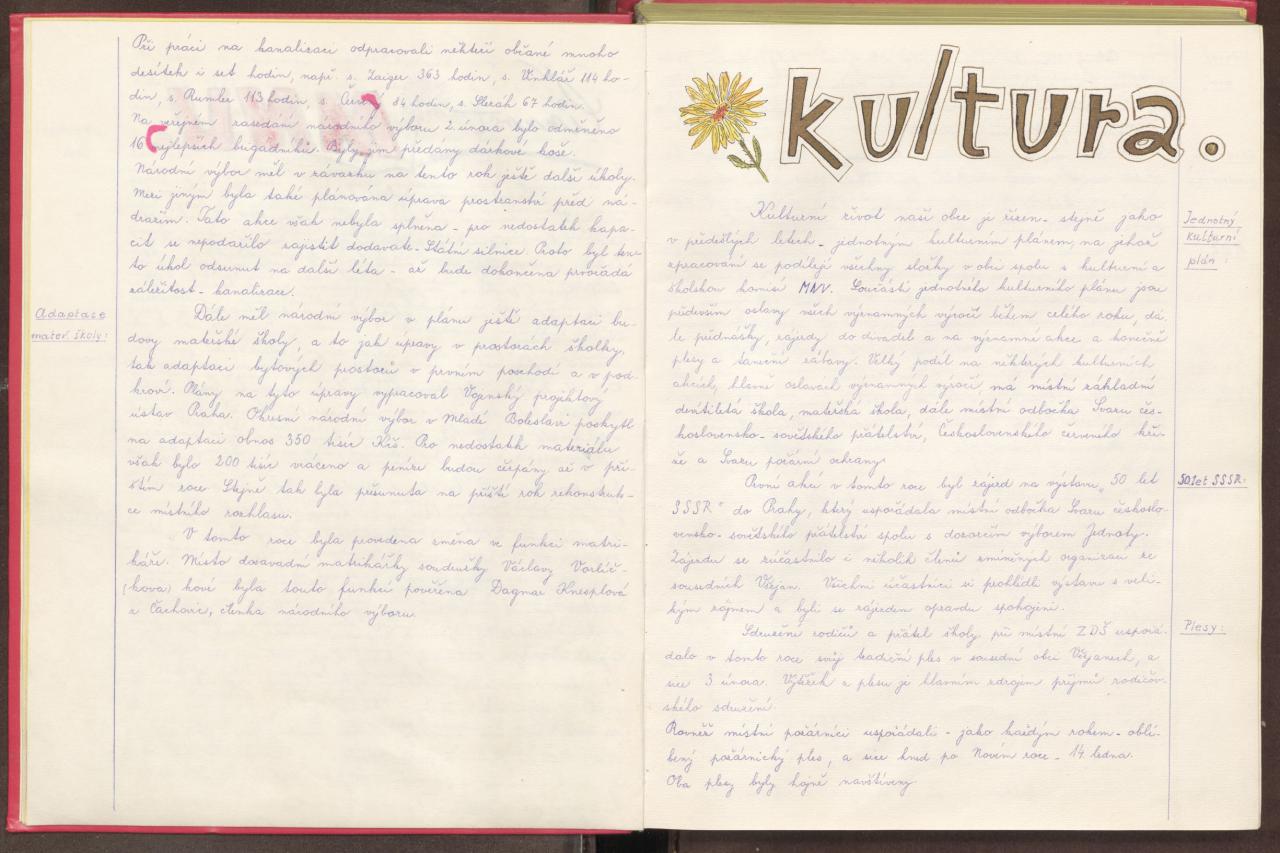 Při práci na kanalizaci odpracovali někteří občané mnoho
desítek i set hodin, např. s. Zaiger 363 hodin, s. Vinklář 114 ho-
din, s. Rumler 113 hodin, s. 84 hodin, s. Sleráh 67 hodin.
Na veřejném zasedání národního výboru 2. února bylo odměněno
16 nejlepších brigádníků. Byly jim předány dárkové koše.
Národní výbor měl v závazku na tento rok ještě další úkoly.
Mezi jiným byla také plánována úprava prostranství před ná-
dražím. Tato akce však nebyla splněna - pro nedostatek kapa-
cit se nepodařilo zajistit dodavate - Státní silnice. Proto byl ten-
to úkol odsunut na další léta - až bude dokončena prvořadá
záležitost - kanalizace.
Adaptace
mateř. školy:
Dále měl národní výbor v plánu ještě adaptaci bu-
dovy mateřské školy, a to jak úpravy v prostorách školky,
tak adaptaci bytových prostorů v prvním poschodí a v pod-
kroví. Plány na tyto úpravy vypracoval Vojenský projektový
ústav Praha. Okresní národní výbor v Mladé Boleslavi poskytl
na adaptaci obnos 350 tisíc Kčs. Pro nedostatek materiálu
však bylo 200 tisíc vráceno a peníze budou čerpány až v pří-
štím roce. Stejně tak byla přesunuta na příští rok rekonstruk-
ce místního rozhlasu.
V tomto roce byla provedena změna ve funkci matri-
káře. Místo dosavadní matrikářky soudružky Václavy Vorlíč-
(kova) kové byla touto funkcí pověřena Dagmar Knesplová
z Čachovic, členka národního výboru.
kultura.
Jednotný
kulturní
plán:
Kulturní život naší obce je řízen - stejně jako
v předešlých letech - jednotným kulturním plánem, na jehož
zpracování se podílejí všechny složky v obci spolu s kulturní a
školskou komisí MNV. Součástí jednotného kulturního plánu jsou
především oslavy všech významných výročí během celého roku, dá-
le přednášky, zájezdy do divadel a na významné akce a konečně
plesy a taneční zábavy. Velký podíl na některých kulturních
akcích, hlavně oslavách významných výročí má místní základní
devítiletá škola, mateřská škola, dále místní odbočka Svazu čes-
koslovensko-sovětského přátelství, Československého červeného kří-
že a Svazu požární ochrany.
50 let SSSR:
První akcí v tomto roce byl zájezd na výstavu „50 let
SSSR" do Prahy, který uspořádala místní odbočka Svazu českoslo-
vensko-sovětského přátelství spolu s dozorčím výborem Jednoty.
Zájezdu se zúčastnilo i několik členů zmíněných organizací ze
sousedních Všejan. Všichni účastníci si prohlédli výstavu s veli-
kým zájmem a byli se zájezdem opravdu spokojeni.
Plesy:
Sdružení rodičů a přátel školy při místní ZDŠ uspořá-
dalo v tomto roce svůj tradiční ples v sousední obci Všejanech, a
sice 3. února. Výtěžek z plesu je hlavním zdrojem příjmů rodičov-
ského sdružení.
Rovněž místní požárníci uspořádali - jako každým rokem - oblí-
bený požárnický ples, a sice hned po Novém roce - 14. ledna.
Oba plesy byly hojně navštíveny